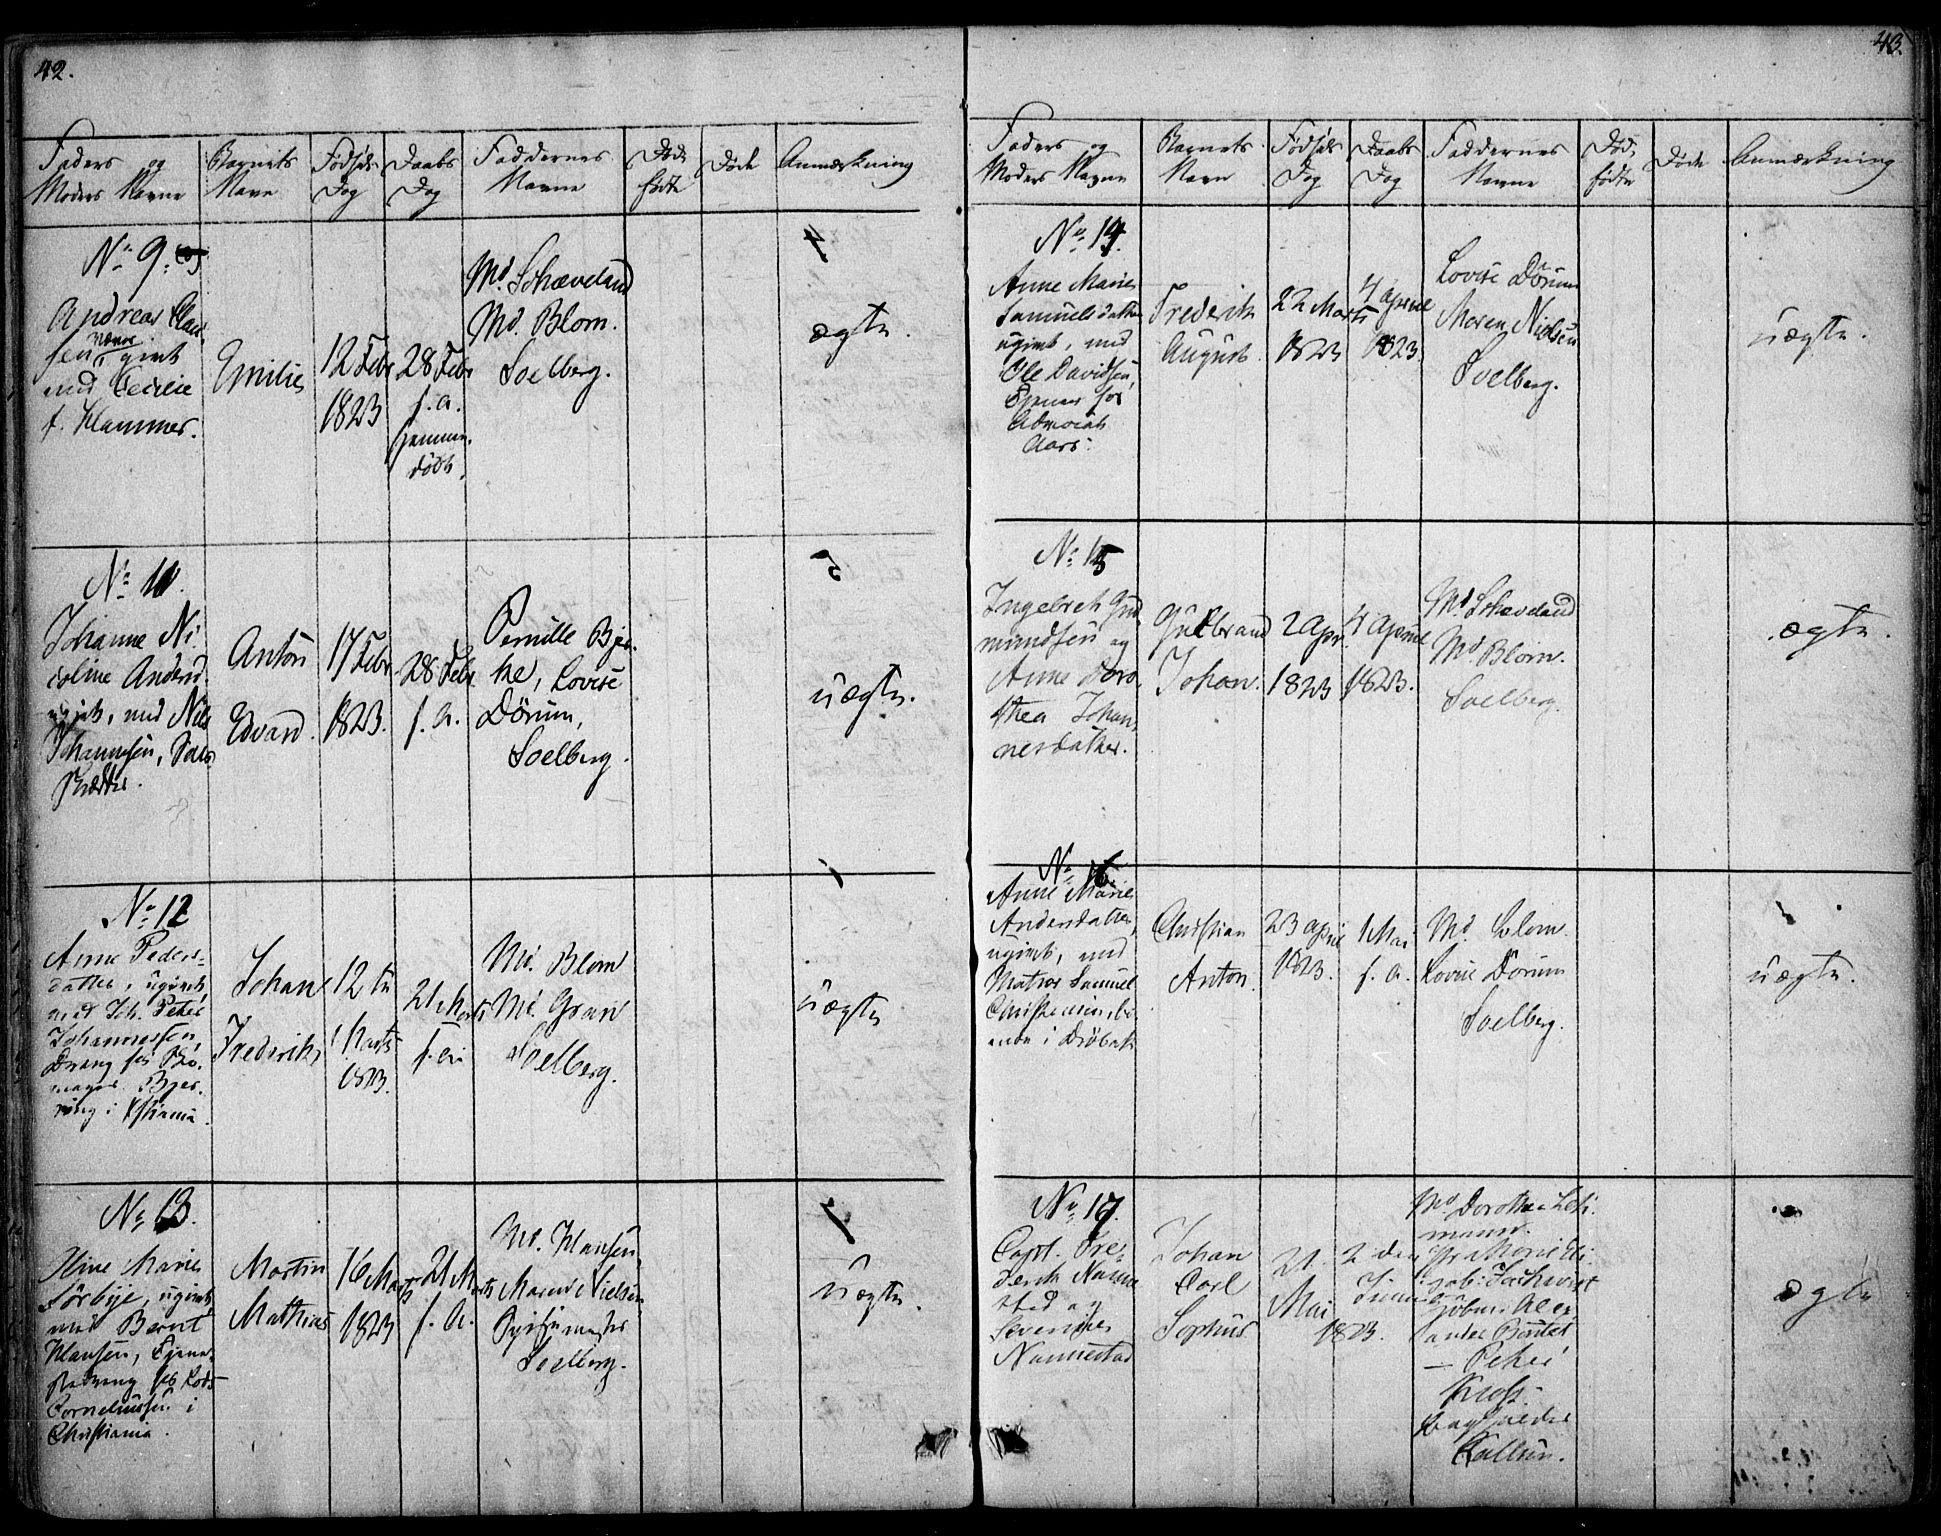 42.
Faders og
Moders Navne
Barnets
Navn
Fødsels
Dag
Daabs
Dag
Faddernes
Navne
Død
fødte
Døde
Anmærkning
No 9.
Andreas Clau
sen, givt
med Cecilie
f. Hammer.
Emilie
12 Febr
1823
28 Febr
f. a.
hjemme
døbt.
Md. Schæveland
Md. Blom.
Soelberg.
ægte.
No 11.
Johanne Ni
coline Anders
ugivt, med Nils
Johannsen,
Anton
Edvard.
17 Febr
1823.
28 Febr.
f. a.
Pernille Bjer
ke, Lovise
Dörum,
Soelberg.
uægte.
No 12
Anne Peders-
datter, ugivt
med Joh. Peter
Johannessen,
Dreng for
Bjer-
ring i Xstiania.
Johan
Frederik
12te
Marts
1823.
21 Marts
f. a.
Md. Blom
Md. Gran
Soelberg.
uægte
No 13.
Marie
Förbye, ugivt
med Bernt
Hansen, Tjene-
stedreng for
Corneliussen i
Christiania.
Martin
Mathias
16 Marts
1823
21 Marts
f. a.
Md. Hansen
Maren Nielsen
Soelberg.
Uægte.
43.
Faders og
Moders Navne
Barnets
Navn
Fødsels
Dag
Daabs
Dag
Faddernes
Navne
Død
fødte
Døde
Anmærkning
No 14.
Anne Marie
Samuelsdatter
ugivt, med
Ole Davidsen,
Tjener for
Advocat
Aars.
Frederik
August.
22 Marts
1823
4 April
1823.
Lovise Dörum
Maren Nielsen
Soelberg.
uægte.
No 15
Ingebret Gud
mundsen og
Anne Doro
thea Johan
nesdatter.
Gulbrand
Johan.
2 Apr.
1823
4 April
1823.
Md Schæveland
Md. Blom.
Soelberg.
ægte.
No 16.
Anne Marie
Andersdatter,
ugivt, med
Matros Samuel
Christensen, bo
ende i Dröbak
Christian
Anton.
23 April
1823.
1 Mai
f. a.
Md. Blom.
Lovise Dorum
Soelberg.
uægte.
No 17.
Capt. Fre-
derik Nanne
stad og
Severine
Nannestad
Johan
Carl
Sophus
21.
Mai
1823.
2 den
Juni
Md Dorothea Leh
mann.
Marie
Alex
ander
— Peter
ægte